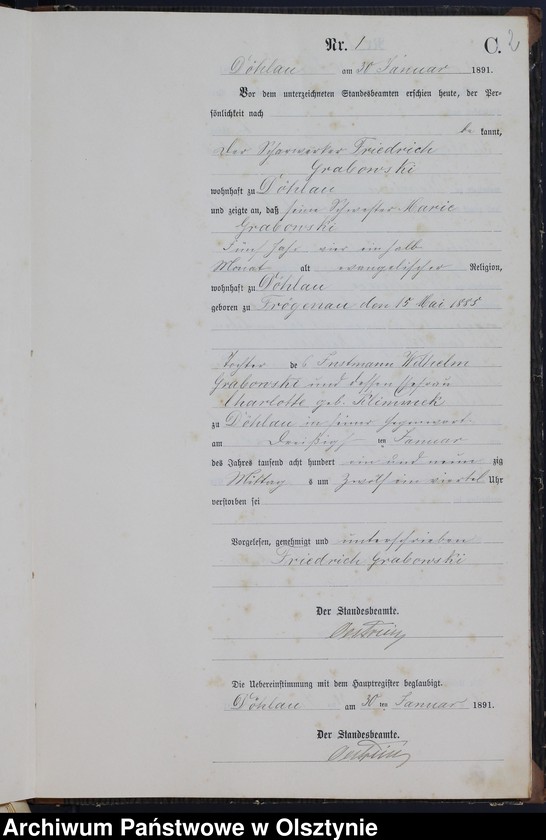 Nr. 1 C. 2
Döhlau am 30 Januar 1891.
Vor dem unterzeichneten Standesbeamten erschien heute, der Per-
sönlichkeit nach
be kannt,
der Scharwerker Friedrich
Grabowski
wohnhaft zu Döhlau
und zeigte an, daß seine Schwester Marie
Grabowski
Fünf Jahr vier einhalb
Monat alt evangelischer Religion,
wohnhaft zu Döhlau
geboren zu Frögenau den 15 Mai 1885
Tochter des Instmann Wilhelm
Grabowski und dessen Ehefrau
Charlotte geb.
zu Döhlau in seiner Gegenwart
am Dreißigsten Januar
des Jahres tausend acht hundert ein und neun zig
Mittag s um Zwölf ein viertel Uhr
verstorben sei
Vorgelesen, genehmigt und unterschrieben
Friedrich Grabowski
Der Standesbeamte.
Die Uebereinstimmung mit dem Hauptregister beglaubigt.
Döhlau am 30 ten Januar 1891.
Der Standesbeamte.
Archiwum Państwowe w Olsztynie